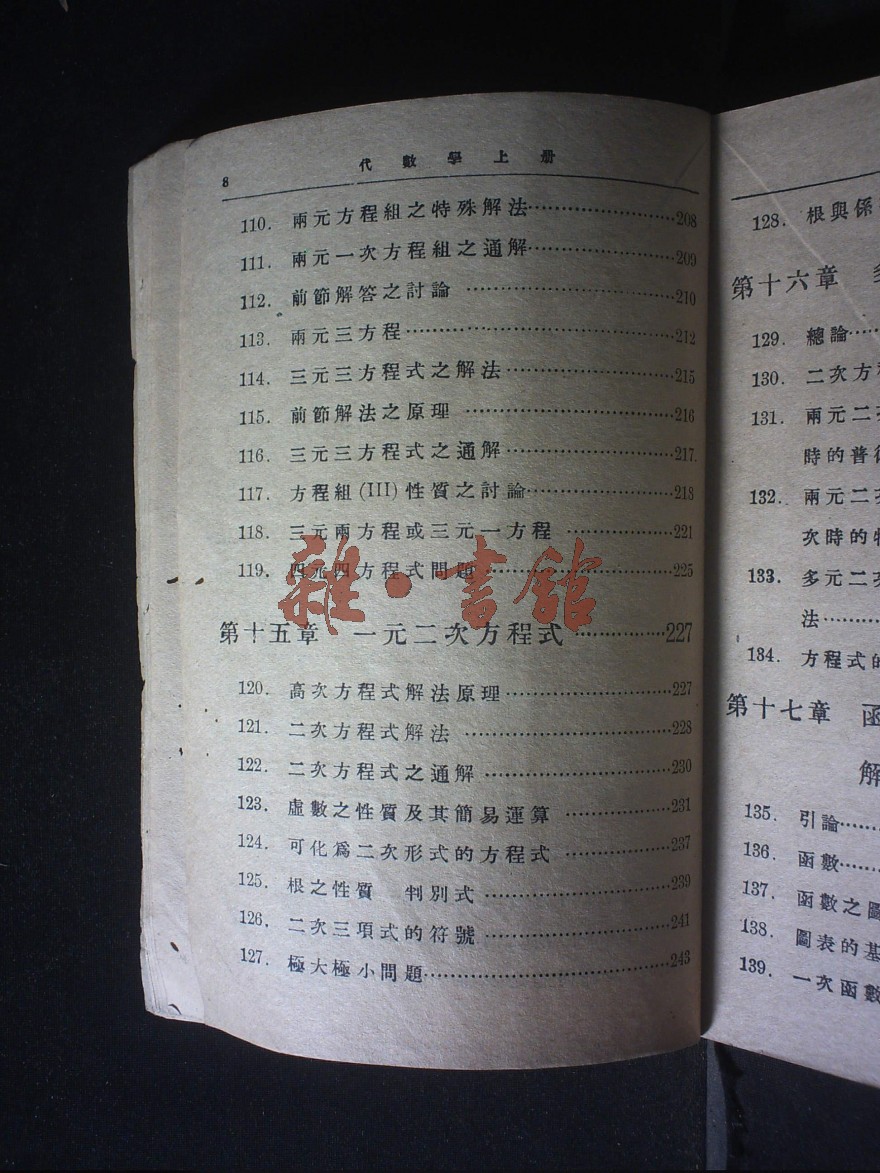 8 代數學上册
110. 兩元方程組之特殊解法……………………208
111. 兩元一次方程組之通解……………………209
112. 前節解答之討論 ……………………210
113. 兩元三方程……………………212
114. 三元三方程式之解法……………………215
115. 前節解法之原理 ……………………216
116. 三元三方程式之通解……………………217
117. 方程組(III)性質之討論……………………218
118. 三元兩方程或三元一方程 ……………221
119. 四元四方程式問題……………………225
雜·書館
第十五章 一元二次方程式……………227
120. 高次方程式解法原理……………………227
121. 二次方程式解法 ……………………228
122. 二次方程式之通解 ……………………230
123. 虛數之性質及其簡易運算 ……………231
124. 可化爲二次形式的方程式 ……………237
125. 根之性質 判別式……………………239
126. 二次三項式的符號……………………241
127. 極大極小問題……………………243
128. 根與係
第十六章
129. 總論……
130. 二次方
131. 兩元二
時的普
132. 兩元二
次時的
133. 多元二
法………
134. 方程式的
第十七章 函
解
135. 引論……
136. 函數……
137. 函數之圖
138. 圖表的基
139. 一次函數